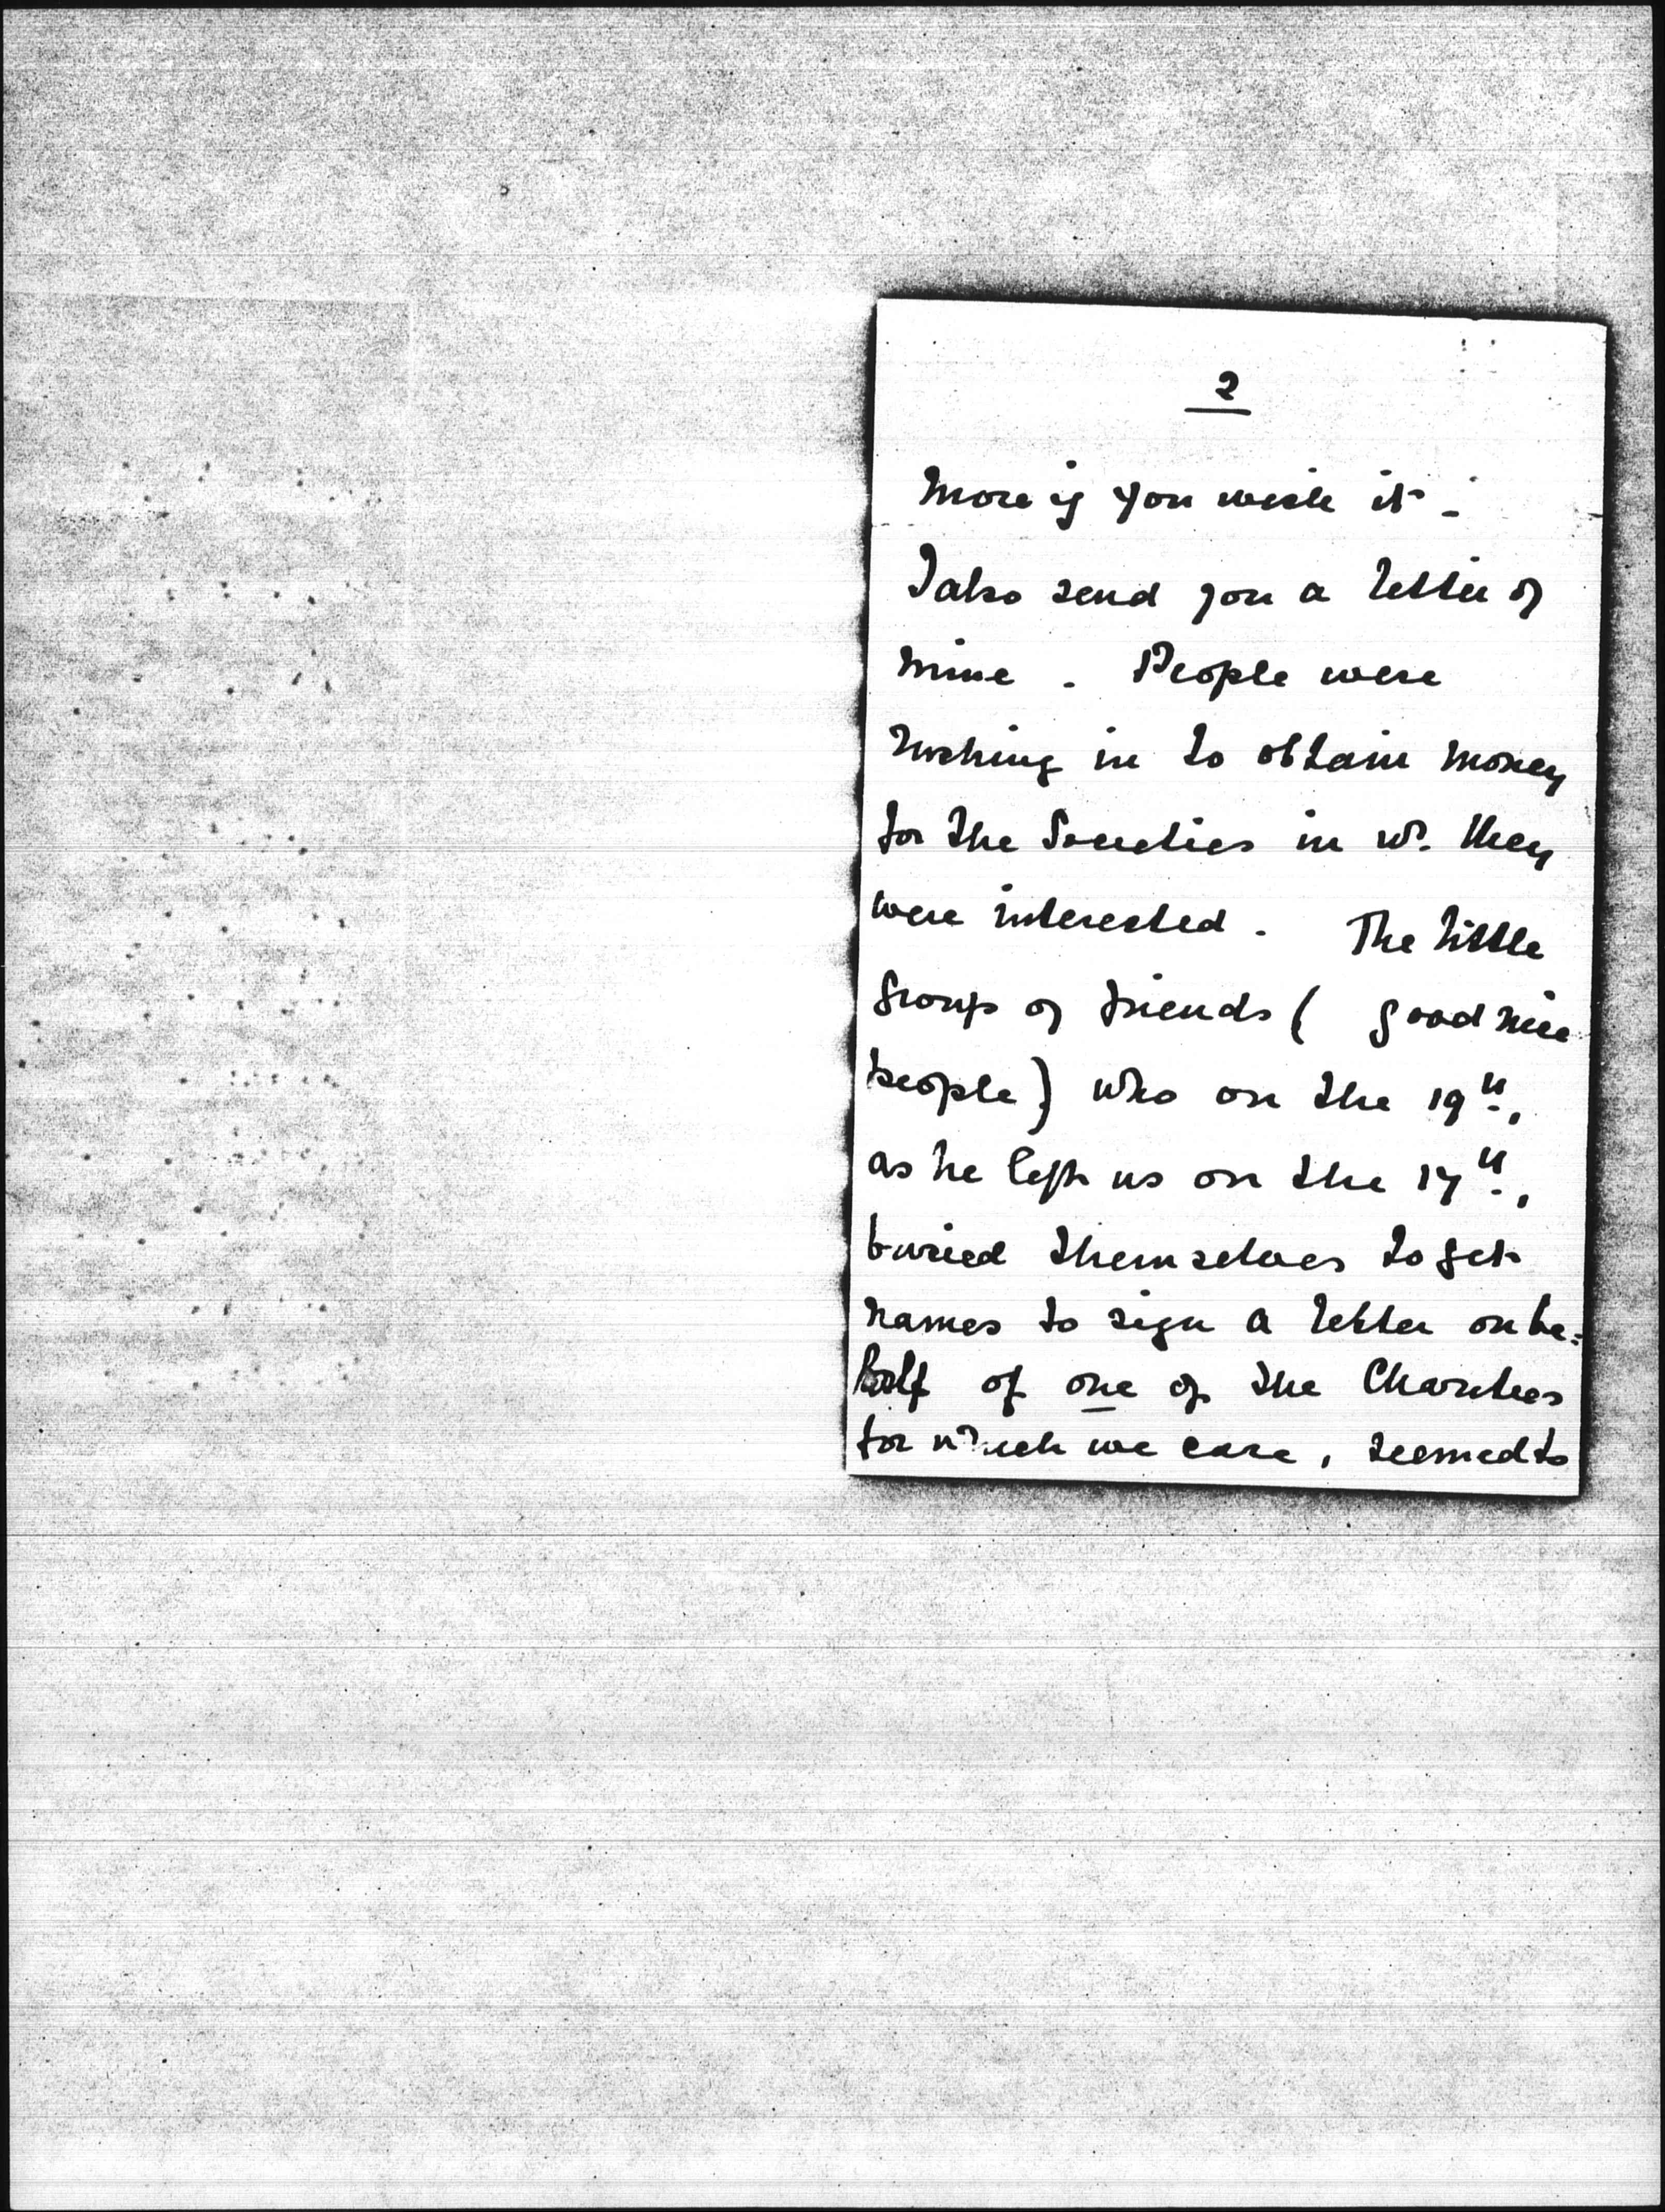 2
more if you wish it -
I also send you a letter of
mine . People were
rushing in to obtain money
for the Societies in wh. they
were interested . The little
group of friends ( good nice
people ) who on the 19th.,
as he left us on the 17th.,
busied themselves to get
names to sign a letter on be=
half of one of the Charities
for which we care , seemed to